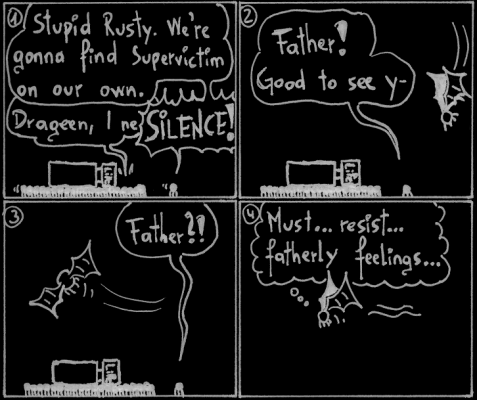 1
Stupid Rusty. We're
gonna find Supervictim
on our own.
Drageen, I ne
SILENCE!
2
Father!
Good to see y-
3
Father?!
4
Must... resist...
fatherly feelings...